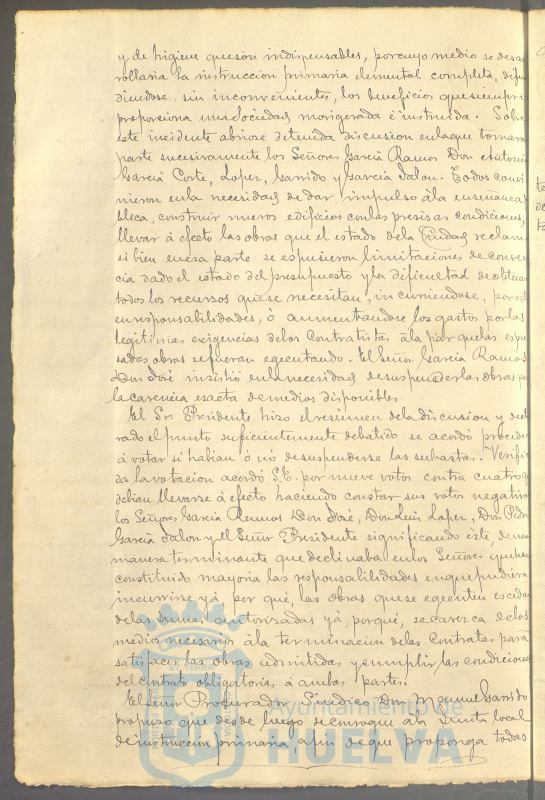 y de higiene que son indispensables, por cuyo medio se desa-
rollaria la instruccion primaria elemental completa, difun
diendose, sin inconvenientes, los beneficios que siempre
proporciona una Sociedad morigerada é instruida. Sobre
este incidente abriose detenida discusion en la que tomaron
parte sucesivamente los Señores Garcia Ramos Don Antonio
Garcia Corte, Lopez, Garrido y Garcia Jalon. Todos convi
nieron en la necesidad de dar impulso à la enseñanza
blica, construir nuevos edificios con las precisas condiciones,
llevar á efecto las obras que el estado de la Ciudad reclama
si bien en esa parte se expusieron limitaciones de conven
cia dado el estado del presupuesto y la dificultad de obtener
todos los recursos que se necesitan, incurriendose, por
en responsabilidades, ó aumentandose los gastos por las
legitimas exigencias de los Contratistas à la par que las expre
sadas obras se fueran egecutando. El Señor Garcia Ramos
Don José insistió en la necesidad de suspender las obras por
la carencia exacta de medios disponibles
El Sr. Presidente hizo el resumen de la discusion y decla
rado el punto suficientemente debatido se acordó proceder
á votar si habian ó nó de suspenderse las subastas. Verifica
da la votacion acordó S.E. por nueve votos contra cuatro que
debian llevarse á efecto haciendo constar sus votos negativos
los Señores Garcia Ramos Don José, Don Luis Lopez, Don Pedro
Garcia Jalon y el Señor Presidente significando éste, de una
manera terminante que declinaba en los Señores que han
constituido mayoria las responsabilidades en que pudiera
incurrirse yá por qué, las obras que se egecuten escedan
de las sumas autorizadas yá, porqué, se carezca de los
medios necesarios à la terminacion de las Contratas para
satisfacer las obras admitidas y cumplir las condiciones
del contrato obligatorias á ambas partes.
El Señor Procurador Sindico Don Manuel Garrido
propuso que desde luego se convoque à la Junta local
de instruccion primaria, a fin de que proponga todas
Ayuntamiento de
HUELVA